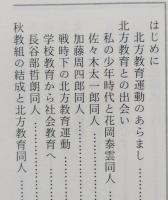 はじめに
北方教育運動のあらまし……
北方教育との出会い…………
私の少年時代と花岡泰雲同人…
佐々木太一郎同人……………
加藤周四郎同人………………
戦時下の北方教育運動………
学校教育から社会教育へ……
長谷部哲朗同人………………
秋教組の結成と北方教育同人…